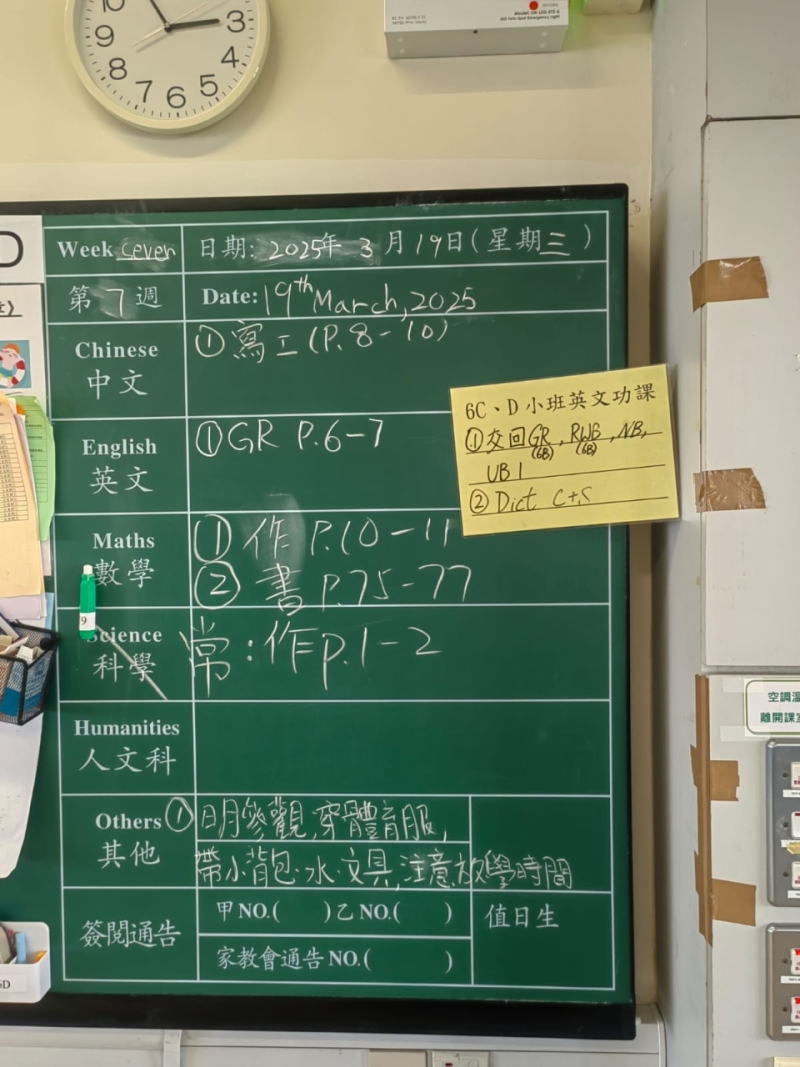 10
9
8
7
6
5
4
3
D
Week seven
日期: 2025年 3 月 19 日 (星期三)
第 7 週
Date: 19th March, 2025
Chinese
中文
① 寫工 (P.8-10)
English
英文
① GR P.6-7
6C、D 小班英文功課
① 交回GR, RWB, NB,
(6B) (6B)
UB1
② Dict C+S
Maths
數學
① 作 P.10-11
② 書 P.75-77
9
Science
科學
常:作p.1-2
Humanities
人文科
Others
其他
① 明參觀,穿體育服,
帶小背包·水·文具,注意放學時間
簽閱通告
甲NO.( ) 乙NO.( )
值日生
家教會通告NO.( )
空調溫
離開課室